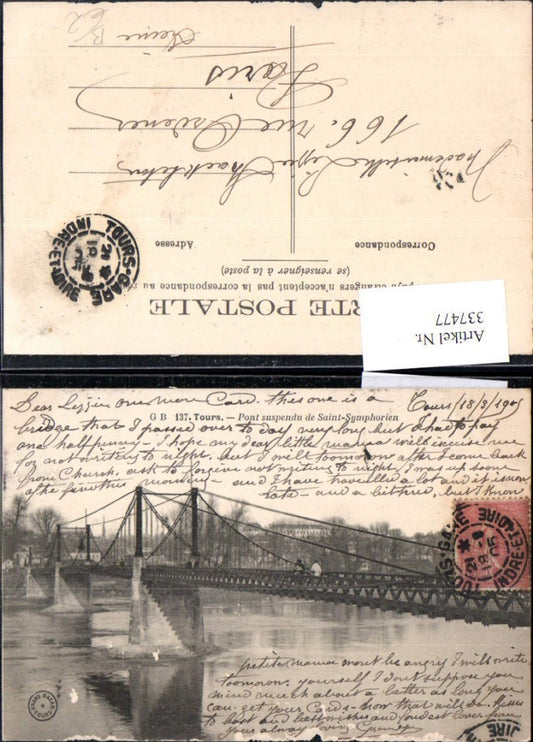 B/2
Seine
Paris
166, rue
Mademoiselle Lizzie
Correspondance
Adresse
(se renseigner à la poste)
pays étrangers n'acceptent pas la correspondance au
RTE POSTALE
TOURS-GARE
INDRE-ET-
Artikel Nr.
337477
Dear Lizzie one more Card. this one is a
Tours/18/3/1905
G B 137. Tours. — Pont suspendu de Saint-Symphorien
bridge that I passed over to day very long but I had to pay
one half penny – I hope my dear little mama will excuse me
for not writing to night, but I will toomorow after I come back
from Church, ask to forgive not writing to night, I was up soon
after five this morning – and I have travelled a lot and it is soon
late – and a bit tired, but I know
TOURS-GARE
INDRE-ET-LOIRE
petite mama wont be angry I will write
toomorow. yourself I dont suppose you
mind much about a letter as long you
can get your Cards – now that will do. Kisses
to both and best wishes and fondest love from
yours always
GRAND BAZAR
TOURS